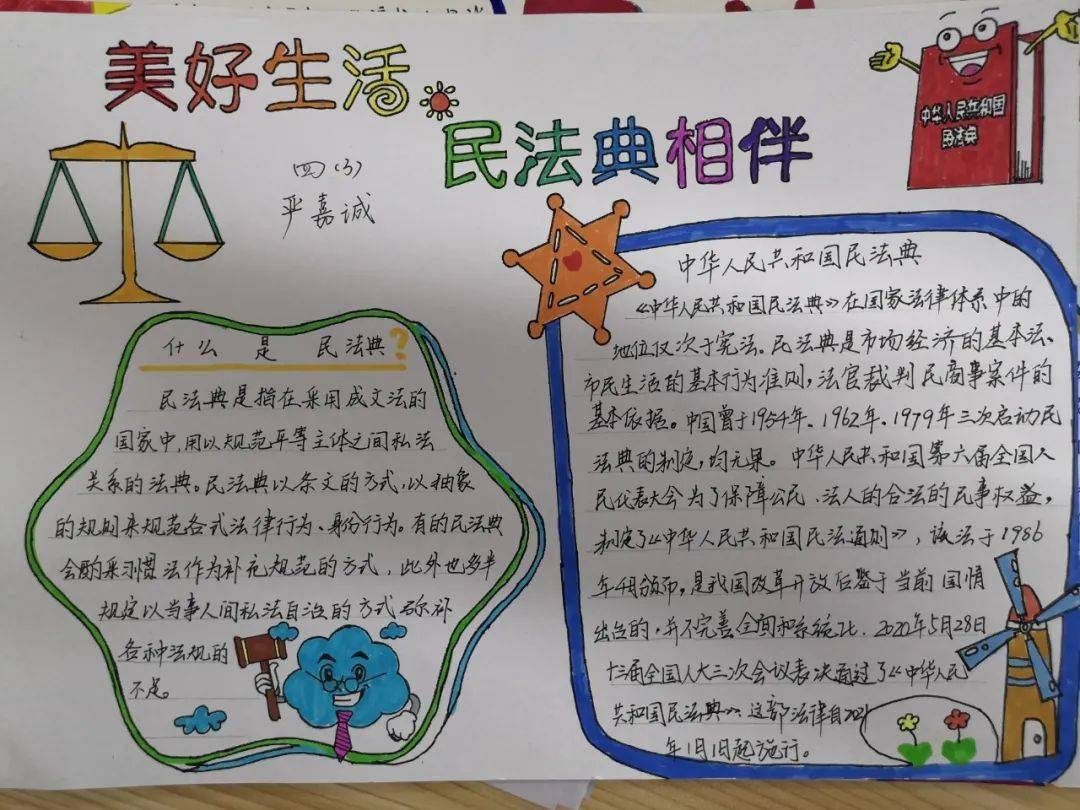 美好生活
民法典相伴
中华人民共和国
民法典
四(3)
严嘉诚
什么是民法典?
民法典是指在采用成文法的
国家中,用以规范平等主体之间私法
关系的法典。民法典以条文的方式,以抽象
的规则来规范各式法律行为、身份行为。有的民法典
会酌采习惯法作为补充规范的方式,此外也多半
规定以当事人间私法自治的方式弥补
各种法规的
不足。
中华人民共和国民法典
《中华人民共和国民法典》在国家法律体系中的
地位仅次于宪法。民法典是市场经济的基本法、
市民生活的基本行为准则,法官裁判民商事案件的
基本依据。中国曾于1954年、1962年、1979年三次启动民
法典的制定,均无果。中华人民共和国第六届全国人
民代表大会为了保障公民、法人的合法的民事权益,
制定了《中华人民共和国民法通则》,该法于1986
年4月颁布,是我国改革开放后鉴于当前国情
出台的,并不完善全面和系统化。2020年5月28日
十三届全国人大三次会议表决通过了《中华人民
共和国民法典》、这部法律自2021
年1月1日起施行。